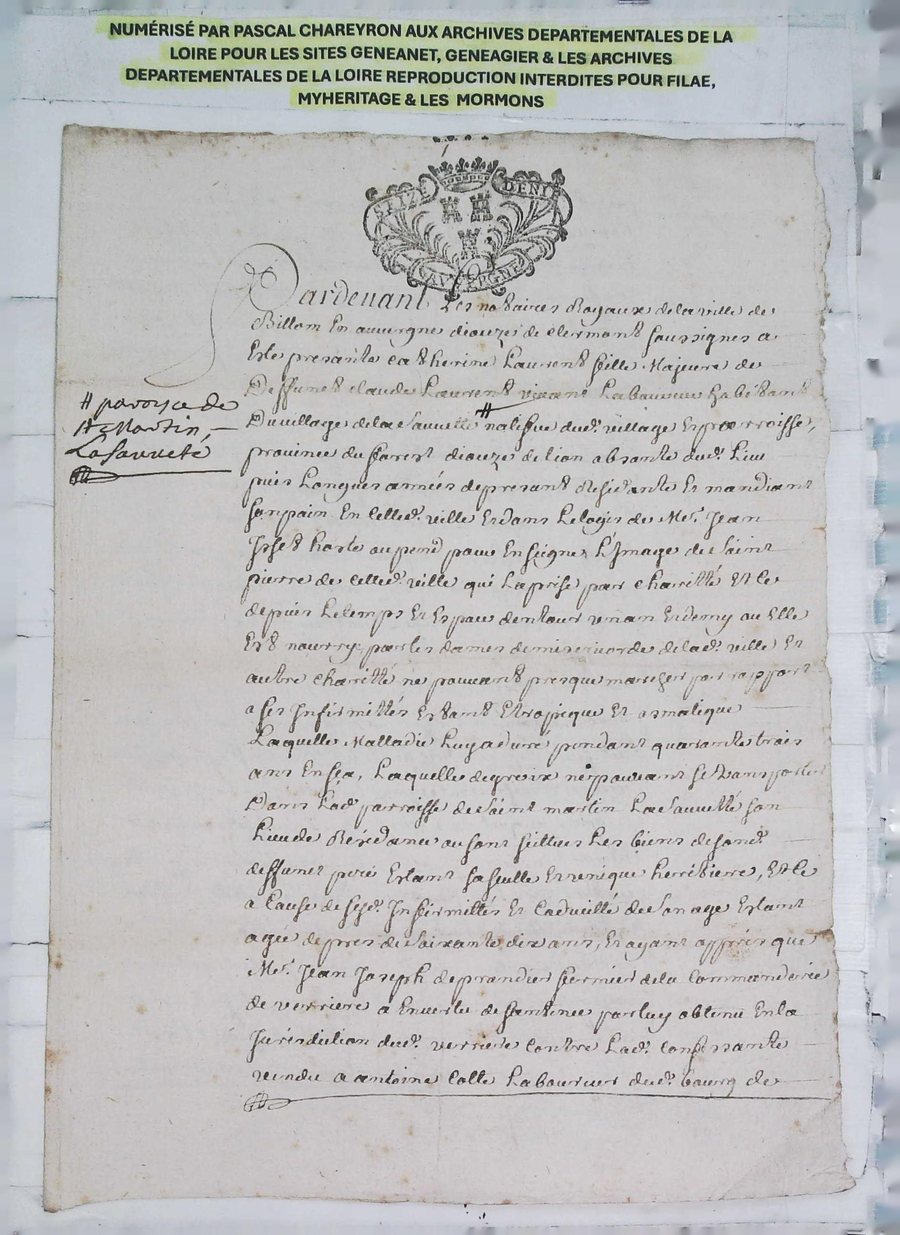 NUMÉRISÉ PAR PASCAL CHAREYRON AUX ARCHIVES DEPARTEMENTALES DE LA
LOIRE POUR LES SITES GENEANET, GENEAGIER & LES ARCHIVES
DEPARTEMENTALES DE LA LOIRE REPRODUCTION INTERDITES POUR FILAE,
MYHERITAGE & LES MORMONS
SEIZE DENIE
AUVERGNE
Pardevant Les notaires Royaux de la ville de
Billom En auvergne diouze de clermont soussignes a
Este presante catherine Laurent fille Majeure de
Deffunct claude Laurent vivant Laboureur habitant
Du village de la sauvette # natifve dud. village Et parroisse,
# paroisse de
St Martin,
La Sauveté
province du forest diouze de lion absante dud. Lieu
puis Longues annés de presant Residante Et mandiant
son pain En celled. ville Et dans Le logis de Mer. Jean
au pend pour Enseigne L'Image de Saint
pierre de celled. ville qui La prise par charitté Et ce
depuis Le temps Et Espace dentour un an Et demy ou Elle
Est nourrye par les dames de misericorde de lad. ville Et
autre charitté ne pouvant presque marcher par rapport
a ses Infirmittés Estant Etropicque Et asmatique
Laquelle Malladie Luy a duré pendant quarante trois
ans En sça, Laquelle de groix ne pouvant se transporter
Dans Lad. parroisse de Saint martin La Sauvetté son
Lieu de ou sont scittues Les biens de sond.
deffunct pere Estant sa seulle Et unique herritierre, Et ce
a Cause de sesd. Infirmittés Et Caducitté de son age Estant
agée de pres de soixante dix ans, Et ayant appris que
Mer. Jean Joseph de prandier fermier de la Commanderie
de verriere a En vertu de santance par luy obtenue En la
Jurisdiction dud. verriere Contre Lad. Conpissante
vendu a antoine Colle Laboureur dud. bourg de